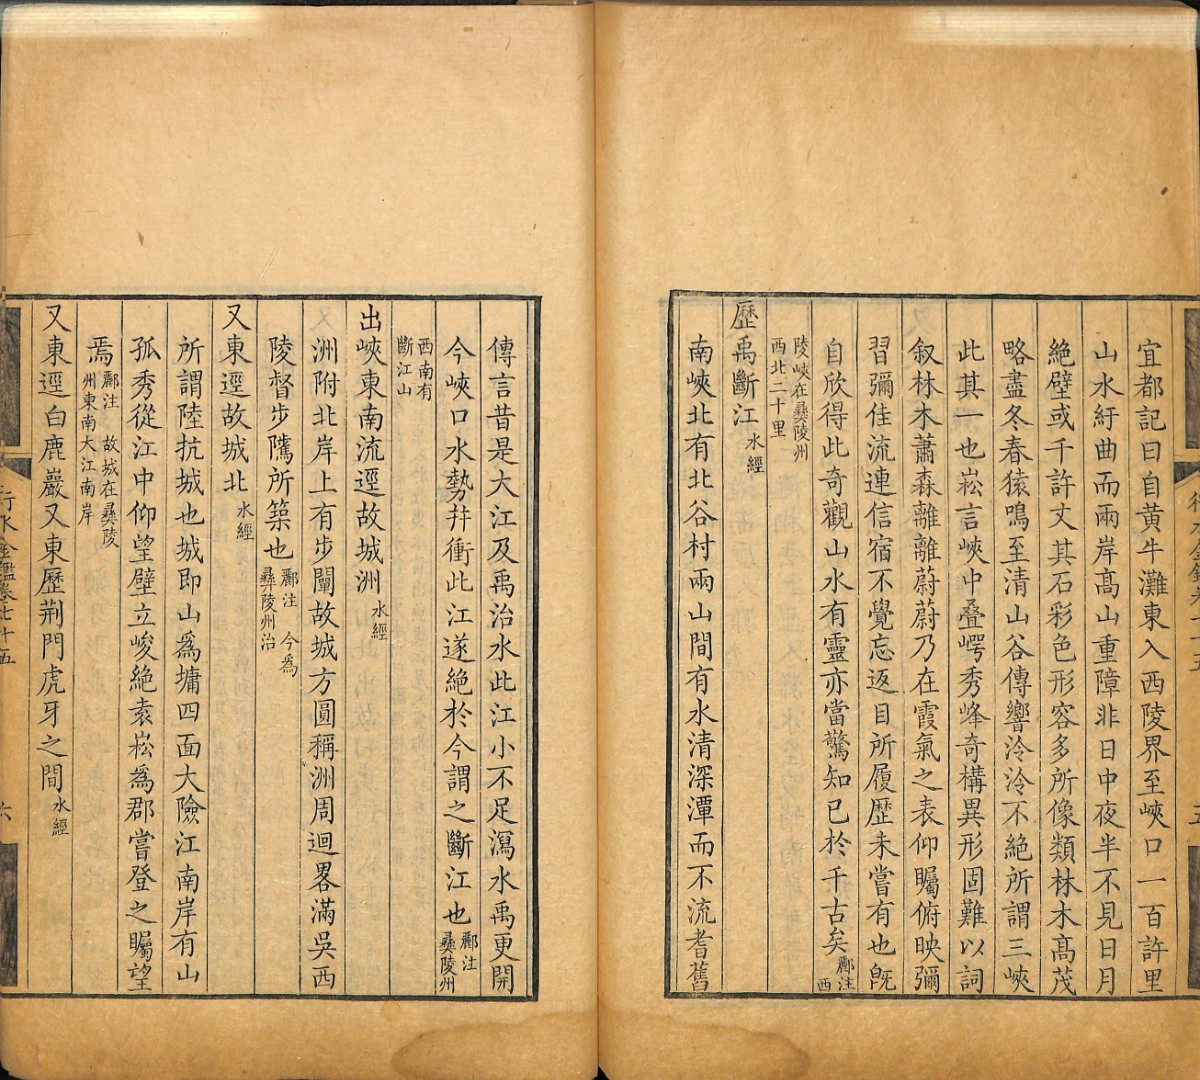 宜都記曰自黃牛灘東入西陵界至峽口一百許里
山水紆曲而兩岸高山重障非日中夜半不見日月
絶壁或千許丈其石彩色形容多所像類林木高茂
略盡冬春猿鳴至清山谷傳響泠泠不絶所謂三峽
此其一也崧言峽中疊崿秀峰奇構異形固難以詞
叙林木蕭森離離蔚蔚乃在霞氣之表仰矚俯映彌
習彌佳流連信宿不覺忘返目所履歷未嘗有也旣
自欣得此奇觀山水有靈亦當驚知已於千古矣酈注西
陵峽在彝陵州西北二十里
歷禹斷江水經
南峽北有北谷村兩山間有水清深潭而不流耆舊
傳言昔是大江及禹治水此江小不足瀉水禹更開
今峽口水勢幷衝此江遂絶於今謂之斷江也酈注彝陵州
西南有斷江山
出峽東南流逕故城洲水經
洲附北岸上有步闡故城方圓稱洲周迴畧滿吳西
陵督步隲所築也酈注今為彝陵州治
又東逕故城北水經
所謂陸抗城也城即山爲墉四面大險江南岸有山
孤秀從江中仰望壁立峻絶袁崧爲郡嘗登之矚望
焉酈注故城在彝陵州東南大江南岸
又東逕白鹿巖又東歷荆門虎牙之間水經
行水金鑑卷七十五
六